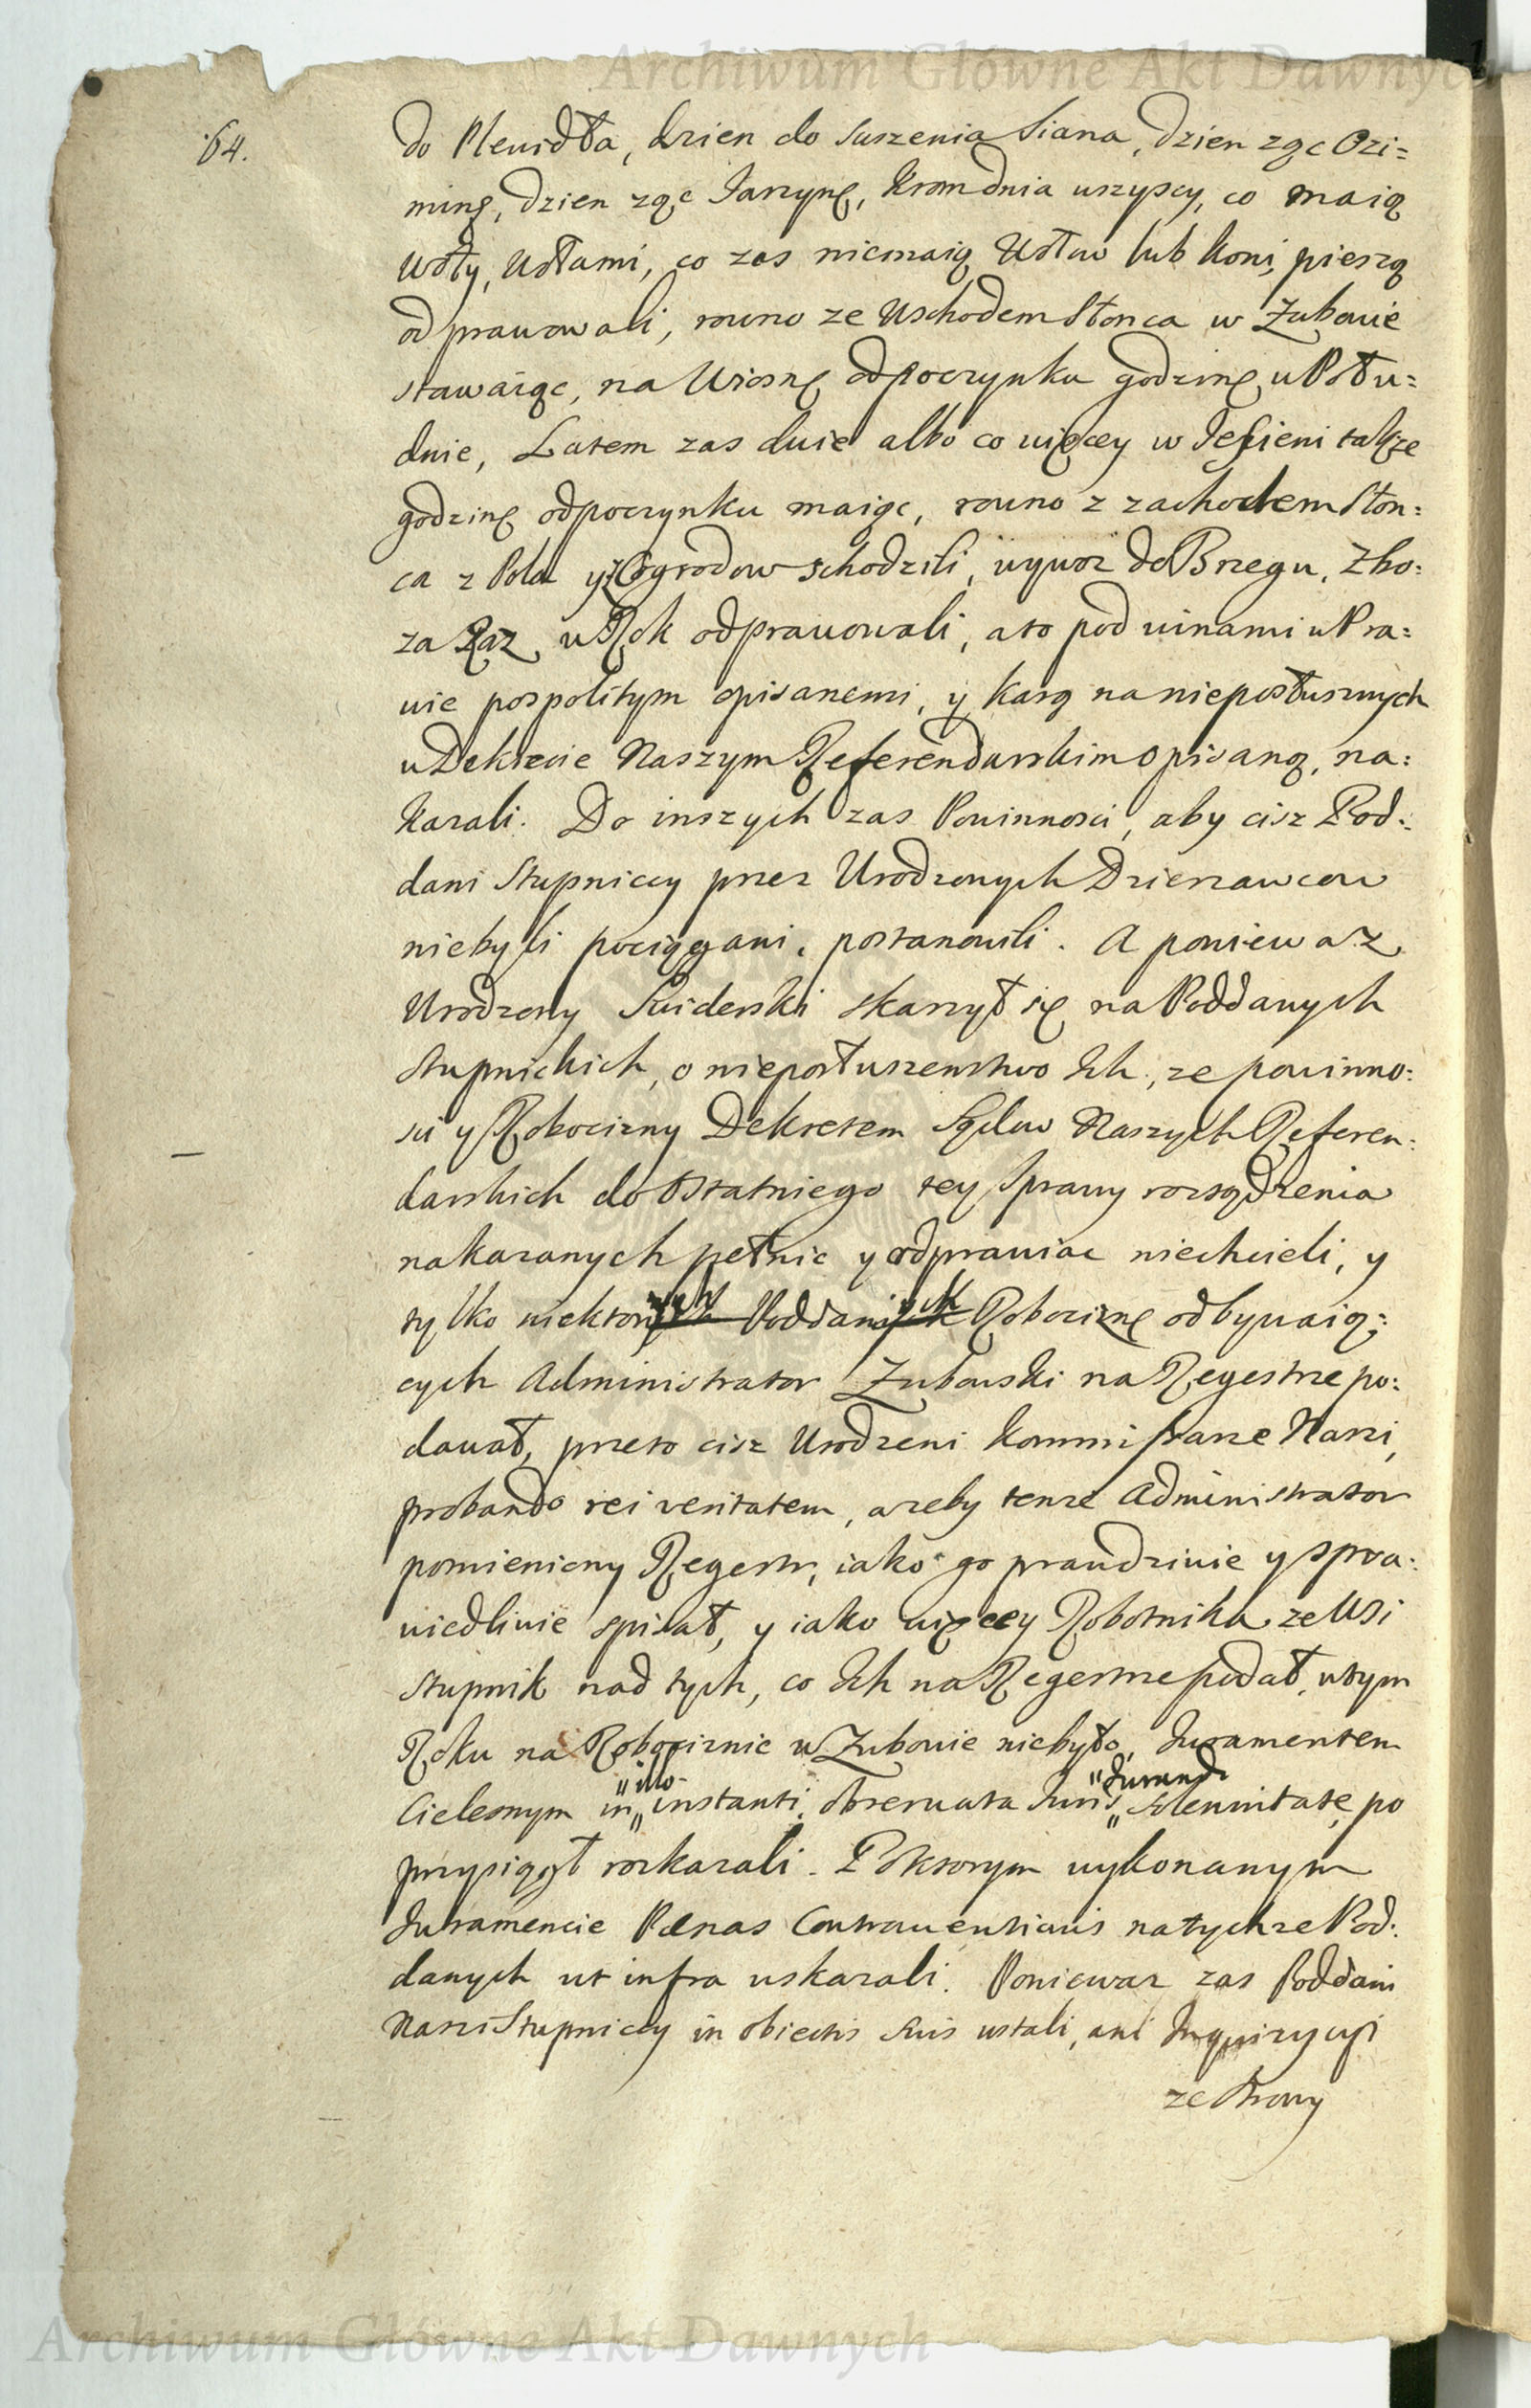 Archiwum Główne Akt Dawnych
64.
do Plewidła, dzien do suszenia Siana, dzien ząc Ozi=
minę, dzien ząc Jarzynę, Krom dnia wszyscy, co maią
Woły, Wołami, co zas niemaią Wołow lub Koni, pieszo
odprawowali, rowno ze Wschodem Słonca w Zubowie
stawaiąc, na Wiosnę odpoczynku godzinę w Połu=
dnie, Latem zas dwie albo co więcey w Jesieni takze
godzinę odpoczynku maiąc, rowno z zachodem Słon=
ca z Pola y z Ogrodow schodzili, wywoz do Brzegu, Zbo=
za Raz w Rok odprawowali, a to pod winami w Pra=
wie pospolitym opisanemi, y Karą na nieposłusznych
w Dekrecie Naszym Referendarskim opisaną, na=
kazali. Do inszych zas Powinnosci, aby cisz Pod=
dani Stupniccy przez Urodzonych Dzierzawcow
niebyli pociągani, postanowili. A poniewaz
Urodzony Swiderski skarzył się na Poddanych
Stupnickich, o nieposłuszenstwo Ich, ze powinno=
sci y Robocizny Dekretem Sądow Naszych Referen=
darskich do Ostatniego tey Sprawy rozsądzenia
nakazanych pełnic y odprawiac niechcieli, y
tylko niektorych Poddanych Robociznę odbywaią=
cych Administrator Zubowski na Regestrze po=
dawał, przeto cisz Urodzeni Kommissarze Nasi,
probando rei veritatem, azeby tenze Administrator
pomieniony Regestr, iako go prawdziwie y spra=
wiedliwie spisał, y iako więcey Robotnika ze Wsi
Stupnik nad tych, co Ich na Regestrze podał, w tym
Roku na Robociznie w Zubowie niebyło, Juramentem
Cielesnym in "illo" instanti, observata Juris "Jurandi" Solennitate, po
przysiągł rozkazali. Po ktorym wykonanym
Juramencie Pœnas Contraventionis na tychze Pod=
danych ut infra wskazali. Poniewaz zas Poddani
Nasi Stupniccy in obiectis suis ustali, ani Inquizycyi
ze Strony
Archiwum Główne Akt Dawnych